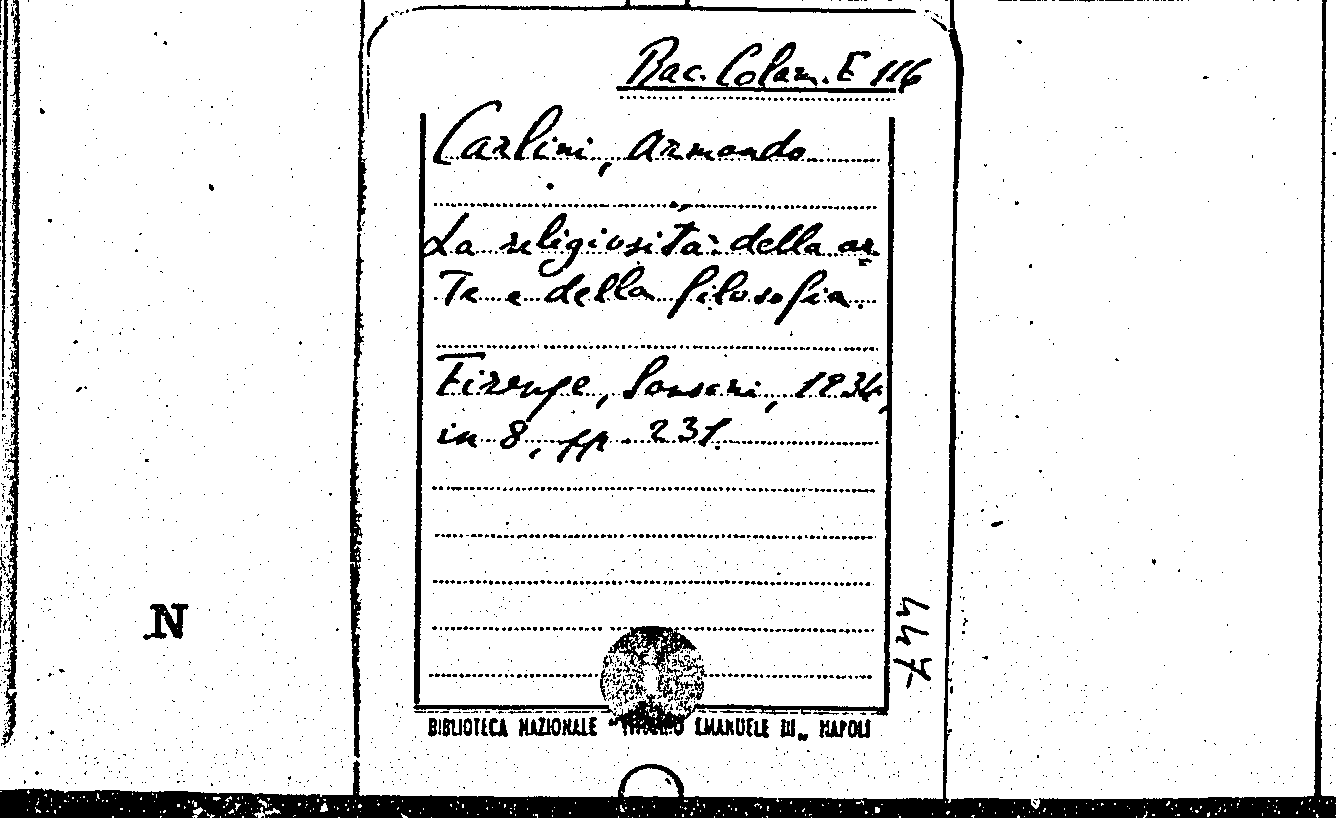 Bac. Colam. E 116
Carlini, Armando
La religiosità della ar-
te e della filosofia.
Firenze, Sansoni, 1934,
in 8, pp. 231.
447
N
BIBLIOTECA NAZIONALE "VITTORIO EMANUELE III" NAPOLI